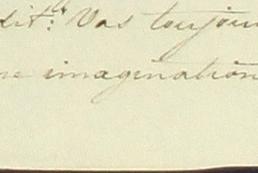 dit: Vos toujou
ne imagination